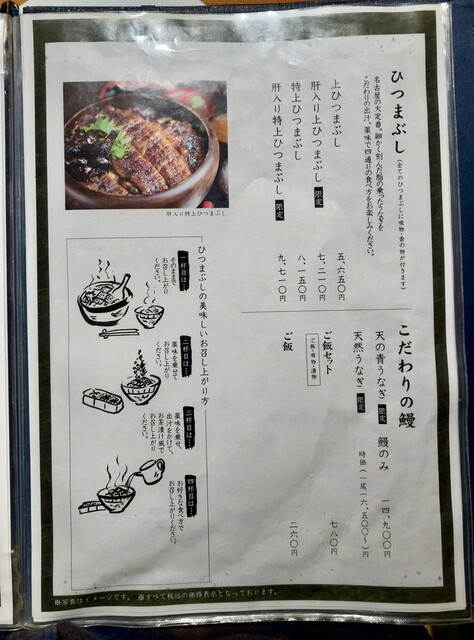 ひつまぶし（全てのひつまぶしに吸物・香の物が付きます）
名古屋の大定番。細かく刻んだ脂の乗ったうなぎを
こだわりの出汁、薬味で四通りの食べ方をお楽しみください。
上ひつまぶし 五、六五〇円
肝入り上ひつまぶし 限定 七、二一〇円
特上ひつまぶし 八、一五〇円
肝入り特上ひつまぶし 限定 九、七一〇円
肝入り特上ひつまぶし
こだわりの鰻
天の青うなぎ 限定 鰻のみ 一四、九〇〇円
天然うなぎ 限定 時価（一尾一六、五〇〇〜）円
ご飯セット ご飯・吸物・漬物 七八〇円
ご飯 二六〇円
ひつまぶしの美味しいお召し上がり方
一杯目は…
そのままで
お召し上がり
ください。
二杯目は…
薬味を乗せて
お召し上がり
ください。
三杯目は…
薬味を乗せ、
出汁をかけて、
お茶漬け風で
お召し上がり
ください。
四杯目は…
お好きな食べ方で
お召し上がりください。
※写真はイメージです。 ※すべて税込の価格表示となっております。